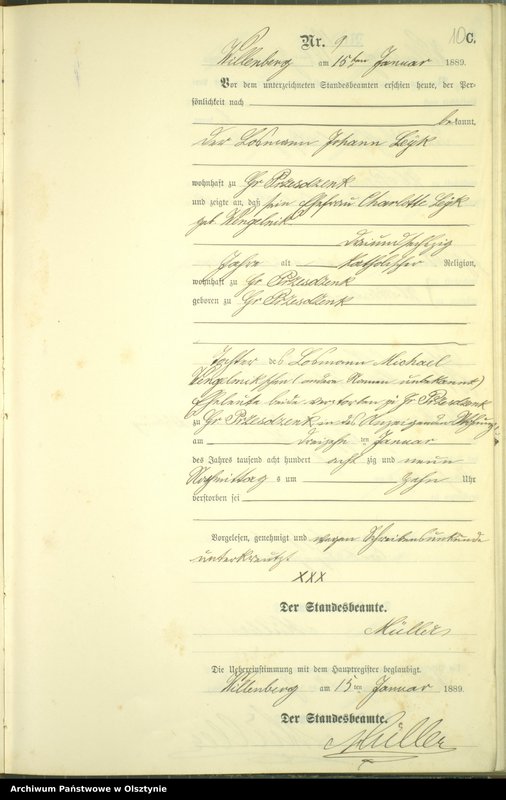 10
C.
Nr. 9
Willenberg am 15ten Januar 1889.
Vor dem unterzeichneten Standesbeamten erschien heute, der Per-
sönlichkeit nach
bekannt,
der Losmann Johann Leyk
wohnhaft zu Gr Przesdzenk
und zeigte an, daß sein Ehefrau Charlotte Leyk
geb
dreiundsechzig
Jahre alt katholischer Religion,
wohnhaft zu Gr Przesdzenk
geboren zu Gr Przesdzenk
Tochter des Losmann Michael
schen (andere Namen unbekannt)
Eheleute beide verstorben zu Gr Przesdzenk
zu Gr Przesdzenk in des Anzeigenden Wohnung
am ten Januar
des Jahres tausend acht hundert achtzig und neun
Nachmittags um zehn Uhr
verstorben sei
Vorgelesen, genehmigt und wegen Schreibensunkunde
unterkreuzt
XXX
Der Standesbeamte.
Müller
Die Uebereinstimmung mit dem Hauptregister beglaubigt.
Willenberg am 15ten Januar 1889.
Der Standesbeamte.
Müller
Archiwum Państwowe w Olsztynie